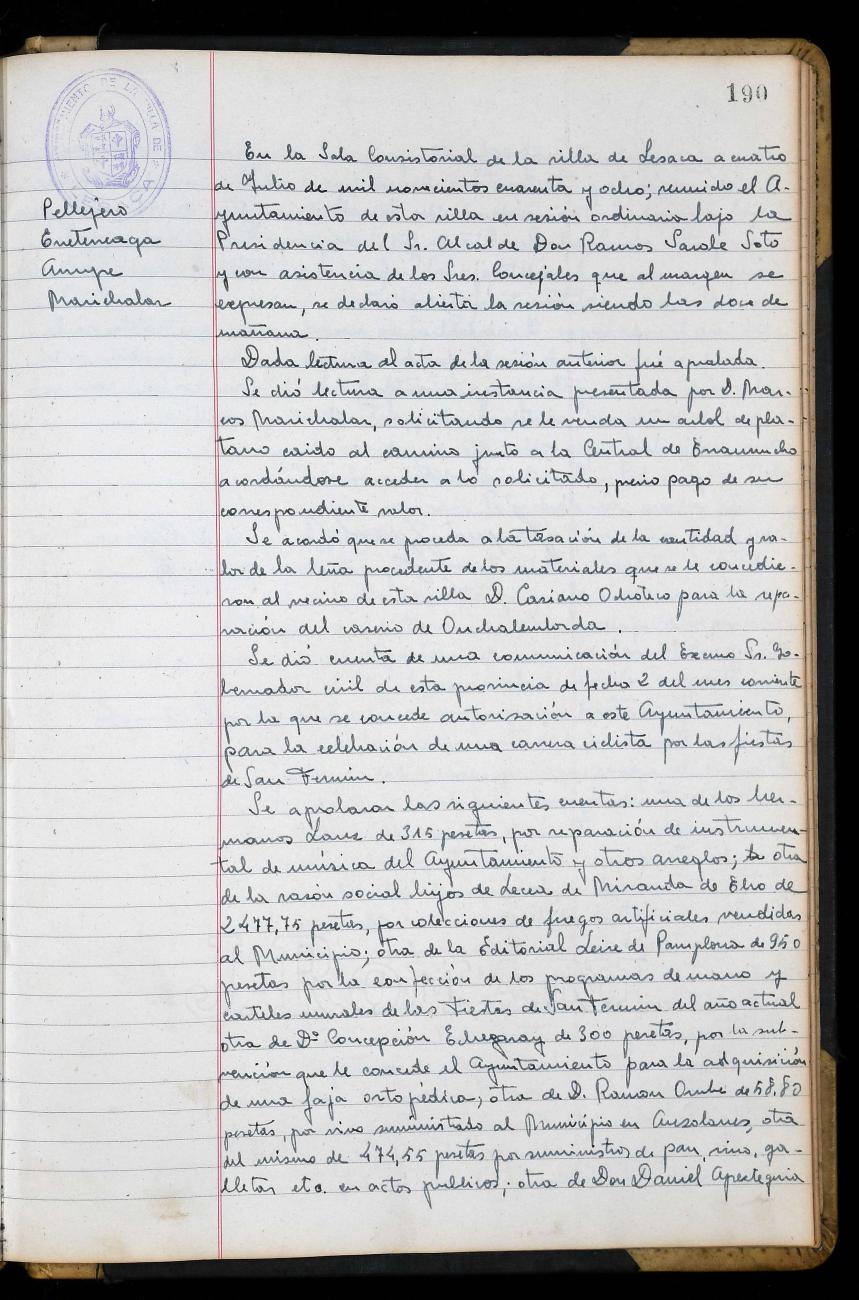 190
AYUNTAMIENTO DE LA VILLA DE LESACA
Pellejero
Eneteneaga
Arrupe
Marichalar
En la Sala Consistorial de la villa de Lesaca a cuatro
de Julio de mil novecientos cuarenta y ocho; reunido el A-
yuntamiento de esta villa en sesión ordinaria bajo la
Presidencia del Sr. Alcalde Don Ramos Sarobe Soto
y con asistencia de los Sres. Concejales que al margen se
expresan, se declaró abierta la sesión siendo las doce de
mañana.
Dada lectura al acta de la sesión anterior fué aprobada.
Se dió lectura a una instancia presentada por D. Mar-
cos Marichalar, solicitando se le venda un arbol de pla-
tano caido al camino junto a la Central de
acordándose acceder a lo solicitado, previo pago de su
correspondiente valor.
Se acordó que se proceda a la tasación de la cantidad y va-
lor de la leña procedente de los materiales que se le concedie-
ron al vecino de esta villa D. Casiano Ochoteco para la repa-
ración del caserio de Onchalemborda.
Se dió cuenta de una comunicación del Excmo Sr. Go-
bernador civil de esta provincia de fecha 2 del mes corriente
por la que se concede autorización a este Ayuntamiento,
para la celebración de una carrera ciclista por las fiestas
de San Fermin.
Se aprobaron las siguientes cuentas: una de los her-
manos Lanz de 315 pesetas, por reparación de instrumen-
tal de música del Ayuntamiento y otros arreglos; otra
de la rasón social hijos de Lecea de Miranda de Ebro de
2477,75 pesetas, por colecciones de fuegos artificiales vendidas
al Municipio; otra de la Editorial Leire de Pamplona de 950
pesetas por la confección de los programas de mano y
carteles murales de las Fiestas de San Fermin del año actual
otra de Dª Concepción Echegaray de 300 pesetas, por la sub-
vención que le concede el Ayuntamiento para la adquisición
de una faja ortopédica; otra de D. Ramon Orube de 58,80
pesetas, por vino suministrado al Municipio en Auzolanes, otra
del mismo de 474,55 pesetas por suministros de pan, vino, ga-
lletas etc. en actos publicos; otra de Don Daniel Apesteguia